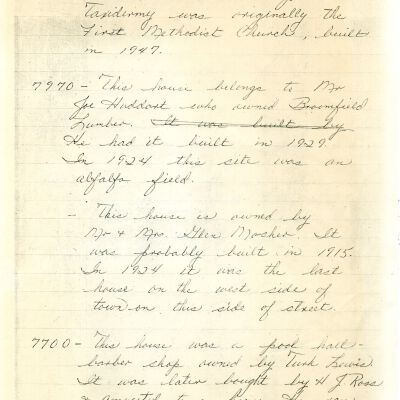 Taxidermy was originally the
First Methodist Church, built
in 1947.
7970 - This house belongs to Mr
Joe Huddart who owned Broomfield
Lumber. It was built by
He had it built in 1929.
In 1924 this site was an
alfalfa field.
- This house is owned by
Mr & Mrs. Glen Mosher. It
was probably built in 1915.
In 1924 it was the last
house on the west side of
town on this side of street.
7700 - This house was a pool hall-
barber shop owned by Turk Lewis.
It was later bought by H J Ross